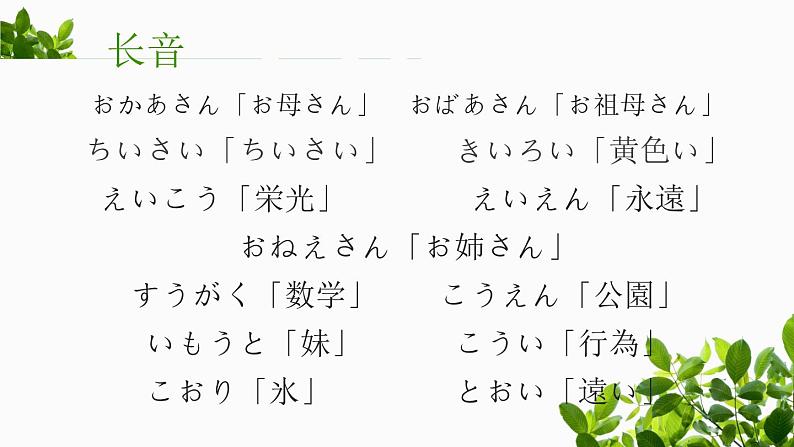 长音
おかあさん「お母さん」 おばあさん「お祖母さん」
ちいさい「ちいさい」 きいろい「黄色い」
えいこう「栄光」 えいえん「永遠」
おねえさん「お姉さん」
すうがく「数学」 こうえん「公園」
いもうと「妹」 こうい「行為」
こおり「氷」 とおい「遠い」